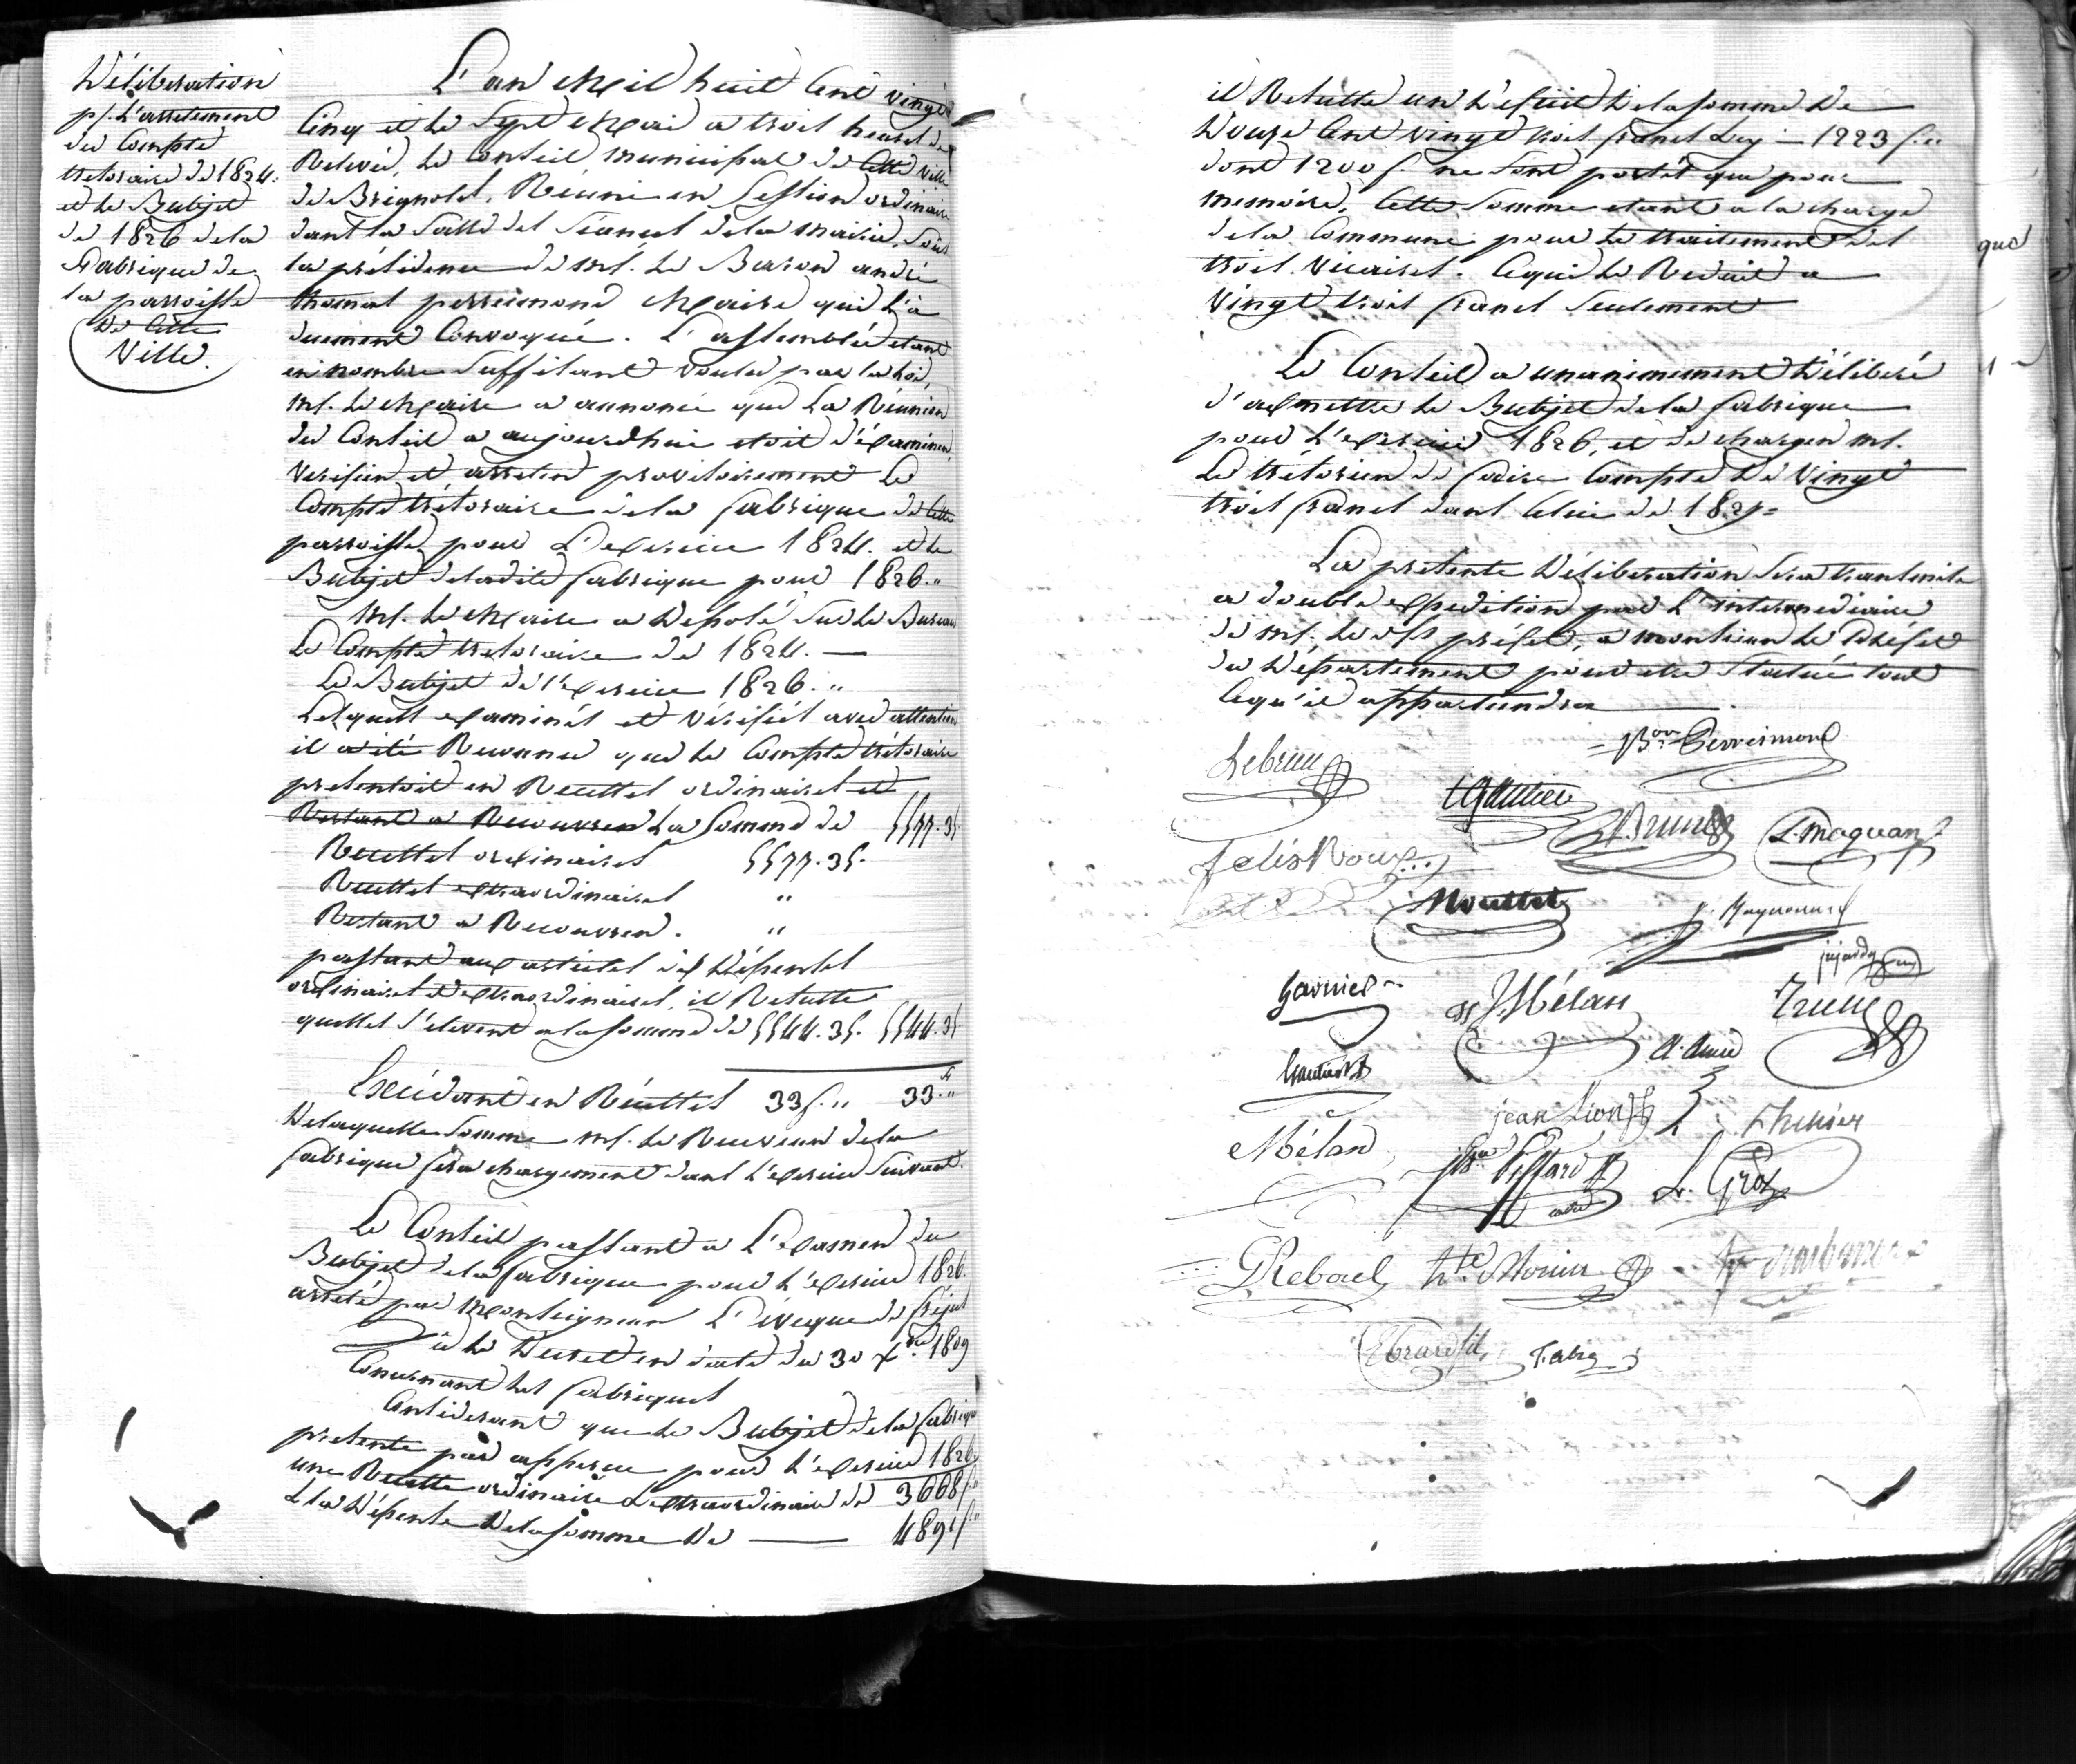 Déliberation
pr. l'arretement
du Compte
tresoraire de 1824.
et le Budjet
de 1826 de la
Fabrique de
la parroisse
de Cette
Ville.
L'an Mil huit Cent vingt
Cinq et le Sept Mai a trois heures de
Relevée, le Conseil municipal de Cette ville
de Brignoles, Réuni en Session ordinaire
dans la Salle des Séances de la mairie, Sous
la présidence de Mr. le Baron andré
thomas perreimond Maire qui l'a
duement Convoqué. L'assemblée etant
en nombre Suffisant voulu par la Loi,
Mr. le Maire a annoncé que la Réunion
du Conseil a aujourdhui etoit d'éxaminer,
Verifier et arreter provisoirement le
Compte trésoraire de la fabrique de Cette
parroisse pour L'exercice 1824. et le
Budjet de ladite fabrique pour 1826."
Mr. le Maire a déposé sur le Bureau
Le Compte tresoraire de 1824.
Le Budjet de l'exercice 1826."
Lesquels examinés et vérifiés avec attention
il a été Reconnu que le Compte trésoraire
presentoit en Recettes ordinaires et
Restant a Recouvrer la Somme de 5577.35.
Recettes ordinaires 5577.35.
Recettes extraordinaires "
Restant a Recouvrer. "
passant aux articles des Dépenses
ordinaires et extraordinaires, il Resulte
qu'elles s'elevent a la somme de 5544.35. 5544.35
Excédant en Recettes 33f." 33."
De laquelle Somme Mr. le Receveur de la
fabrique fera chargement dans l'exercice Suivant.
Le Conseil passant a L'examen du
Budjet de la fabrique pour l'exercice 1826.
arreté par Monseigneur L'évêque de fréjus
Vû le Decret en date du 30 Xbre 1809
Concernant les fabriques
Considerant que le Budjet de la fabrique
presente par apperçu pour l'exercice 1826
une Recette ordinaire & extraordinaire de 3668f"
& la Dépense de la somme de 4891f"
il Resulte un Déficit de la somme de
Douze Cent vingt trois francs Cy - 1223 f."
dont 1200 f. ne sont portés que pour
memoire, Cette Somme etant a la charge
de la Commune pour le traitement des
trois Vicaires. Ce qui le Reduit a
Vingt trois francs Seulement
Le Conseil a unanimement Déliberé
d'admettre le Budjet de la fabrique
pour l'exercice 1826, et de charger Mr.
Le trésorier de faire Compte de Vingt
trois francs dans Celui de 1827=
La presente Déliberation Sera transmise
a double expedition par l'intermediaire
de Mr. le Ss préfet, a monsieur le Préfet
du Département pour etre Statué tout
Ce qu'il appartiendra
Lebrun
Bon Perreimond
Gautier
Brun
L. Maquan
Felix Roux
Mouttet
Garnier
J. Mélan
jean Lion
Mélan
L. Gros
G Reboul
hte Monier
Ebrard fils
Fabre